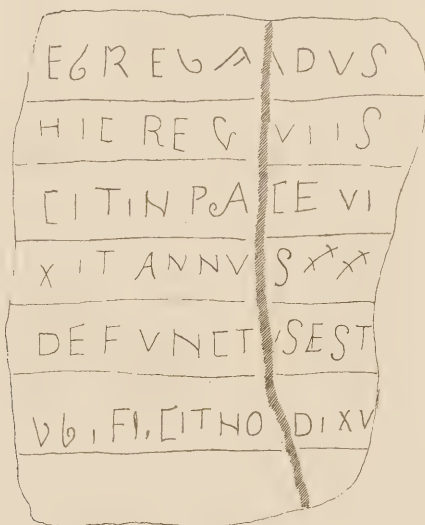 EGREGA\DVS
HIC REG VIIS
CITINPACE VI
XIT ANNVS XXXX
DEFVNCTVSEST
VbI FI, CITNO DI XV